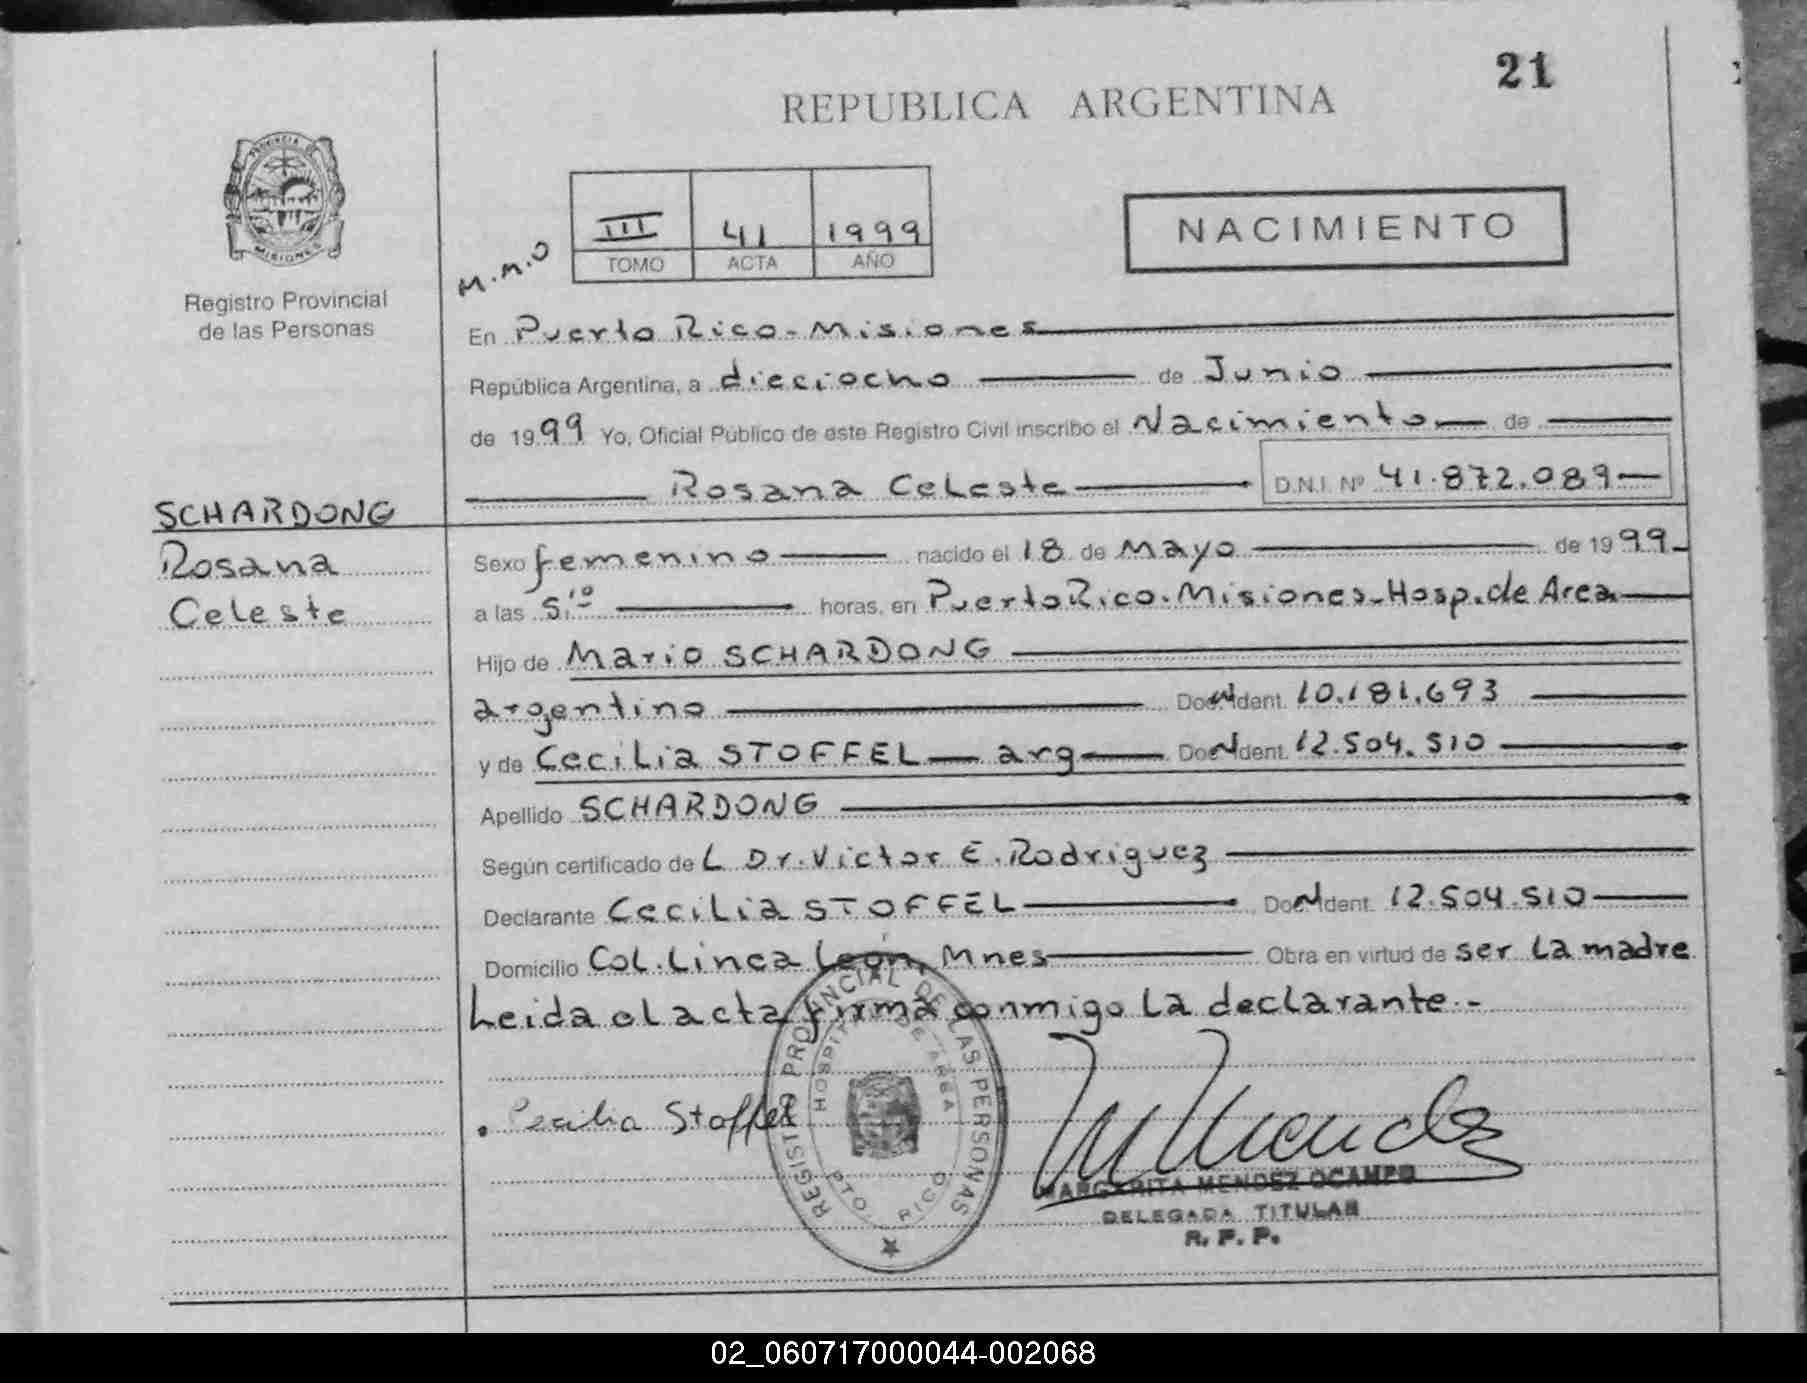 21
REPUBLICA ARGENTINA
PROVINCIA DE
MISIONES
Registro Provincial
de las Personas
M.M.O
III 41 1999
TOMO ACTA AÑO
NACIMIENTO
En Puerto Rico - Misiones
República Argentina, a dieciocho de Junio
de 1999 Yo, Oficial Público de este Registro Civil inscribo el Nacimiento de
Rosana Celeste D.N.I. Nº 41.872.089
SCHARDONG
Rosana
Celeste
Sexo femenino nacido el 18 de Mayo de 1999
a las 5:10 horas, en Puerto Rico. Misiones-Hosp. de Area
Hijo de Mario SCHARDONG
argentino Doc. Ident. 10.181.693
y de Cecilia STOFFEL arg Doc. Ident. 12.504.510
Apellido SCHARDONG
Según certificado de L Dr. Victor E. Rodriguez
Declarante Cecilia STOFFEL Doc. Ident. 12.504.510
Domicilio Col. Linea León, Mnes Obra en virtud de ser la madre
Leida el acta firma conmigo la declarante.-
Cecilia Stoffel
REGISTRO PROVINCIAL DE LAS PERSONAS
HOSPITAL DE AREA
PTO. RICO
MMendez
MARGARITA MENDEZ OCAMPO
DELEGADA TITULAR
R. P. P.
02_060717000044-002068